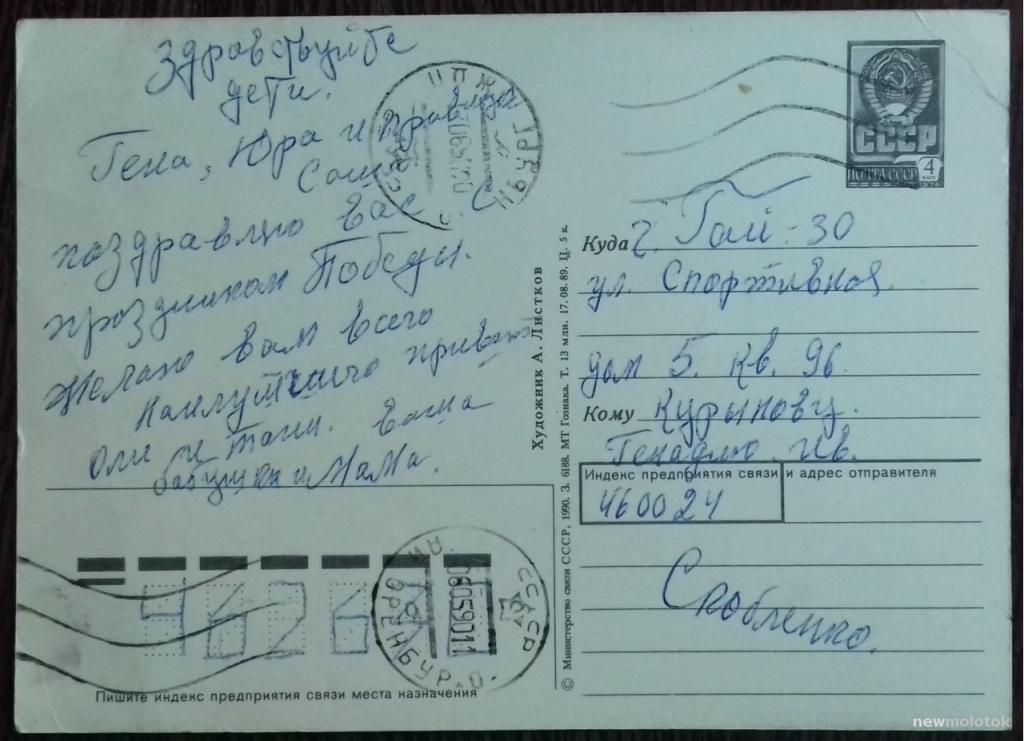 Здравствуйте
дети.
Гена, Юра и правнук
Саша
поздравляю вас с
праздником Победы.
Желаю вам всего
наилутшего привет
Оли и Тани. ваша
бабушка и МаМа.
СССР
ПОЧТА СССР 4 коп
1976
Куда г. Гай-30
ул. Спортивная
дом 5. кв. 96.
Кому Курынову.
Генадию. Ив.
Индекс предприятия связи и адрес отправителя
460024
Скобленко.
Художник А. Листков
© Министерство связи СССР, 1990. З. 6188. МТ Гознака. Т. 13 млн. 17.08.89. Ц. 5 к.
ОРЕНБУРГ
СССР
0805901
Пишите индекс предприятия связи места назначения
newmolotok